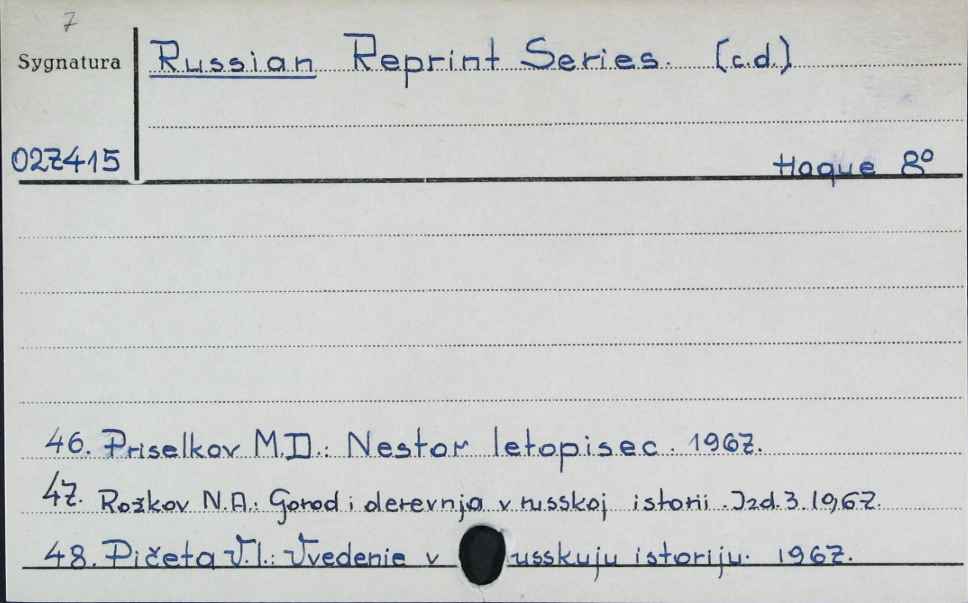 7
Sygnatura Russian Reprint Series. (c.d.)
027415 Hague 8°
46. Priselkov M.D.: Nestor letopisec. 1967.
47. Rožkov N.A.: Gorod i derevnja v russkoj istorii. Izd. 3. 1967.
48. Pičeta V.I.: Vvedenie v russkuju istoriju. 1967.